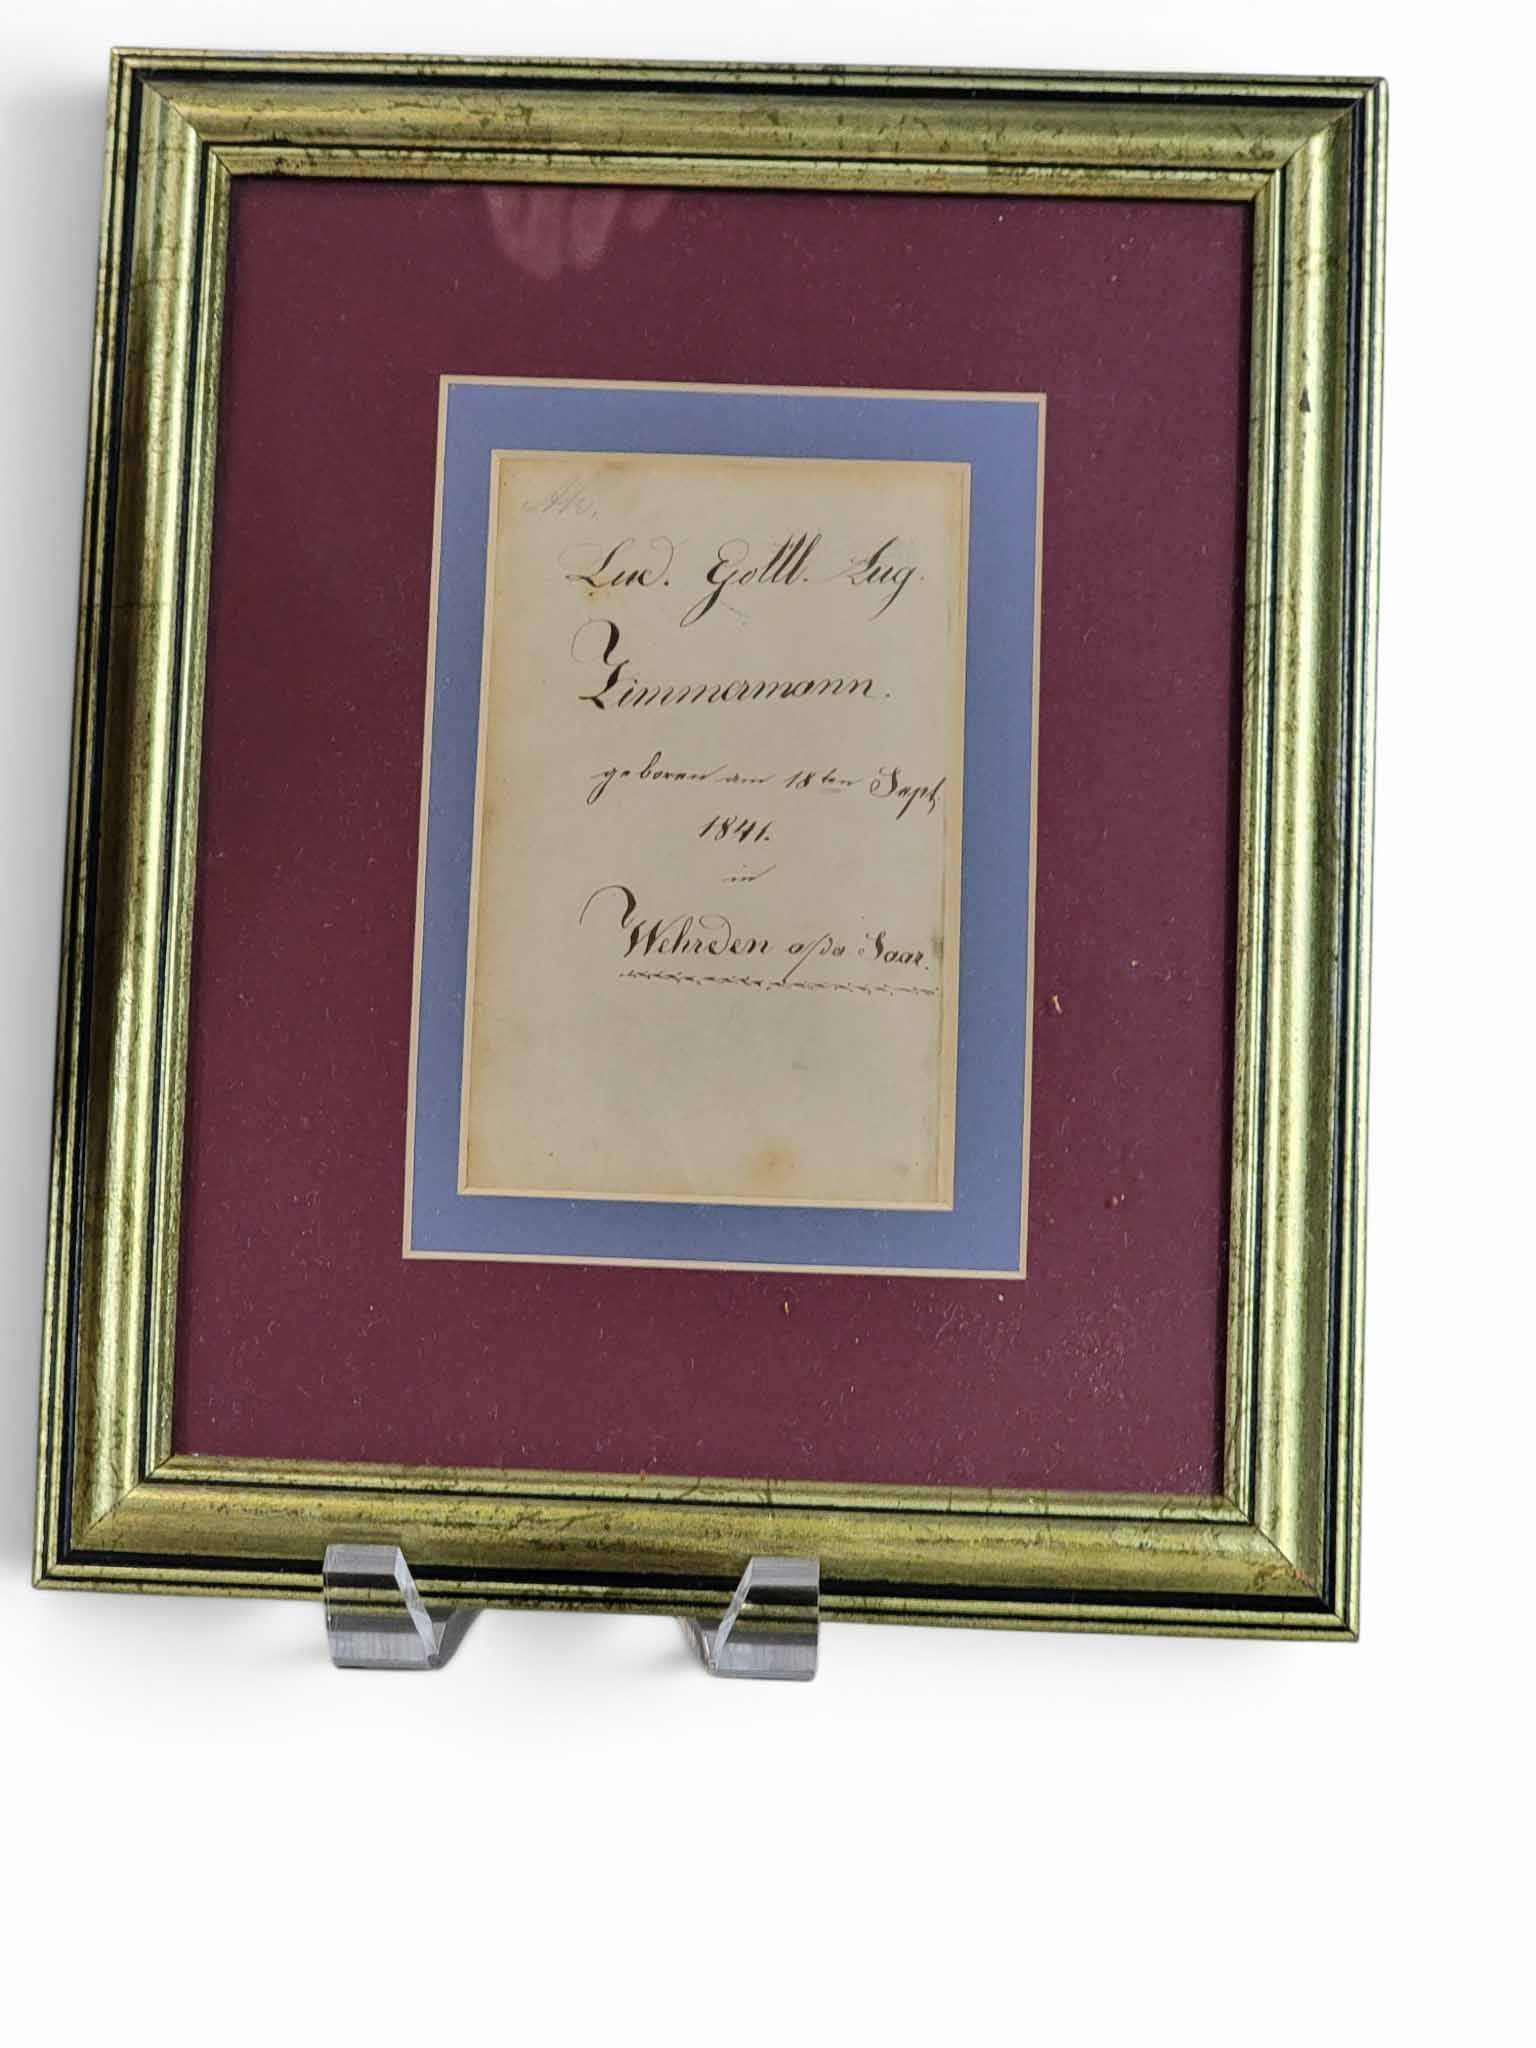 Lud. Gottl. Aug.
Zimmermann.
geboren am 18ten Sept.
1841.
in
Wehrden a/da Saar.